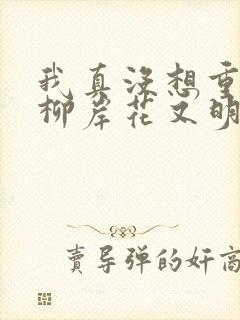 我真没想重
柳岸花又明
卖导弹的奸商